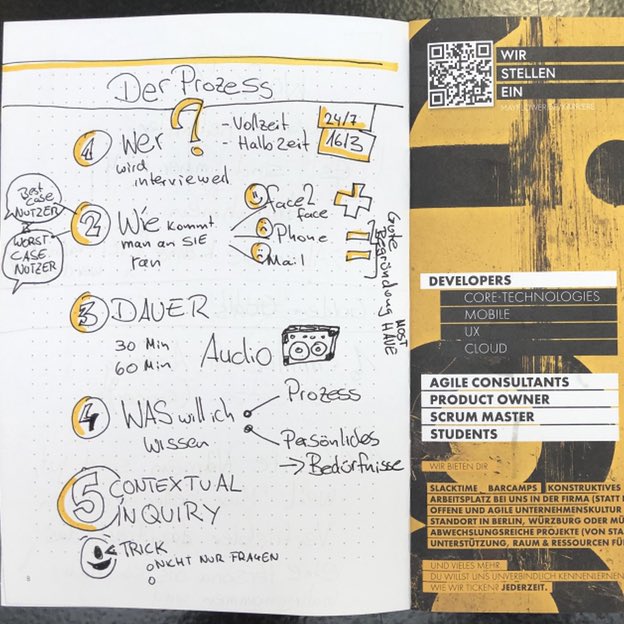 Der Prozess
1 Wer ?
wird
interviewed
- Vollzeit 24/7
- Halbzeit 16/3
Best
Case
NUTZER
&
WORST
CASE
NUTZER
2 Wie kommt
man an SIE
ran
face2
face
Phone
Mail
Gute
Begründung
MOST
HAVE
3 DAUER
30 Min
60 Min
Audio
4 WAS will ich
wissen
Prozess
Persönliches
→ Bedürfnisse
5 CONTEXTUAL
INQUIRY
TRICK
NICHT NUR FRAGEN
8
WIR
STELLEN
EIN
DEVELOPERS
CORE-TECHNOLOGIES
MOBILE
UX
CLOUD
AGILE CONSULTANTS
PRODUCT OWNER
SCRUM MASTER
STUDENTS
WIR BIETEN DIR
SLACKTIME BARCAMPS KONSTRUKTIVES
ARBEITSPLATZ BEI UNS IN DER FIRMA (STATT
OFFENE UND AGILE UNTERNEHMENSKULTUR
STANDORT IN BERLIN, WÜRZBURG ODER
ABWECHSLUNGSREICHE PROJEKTE (VON
UNTERSTÜTZUNG, RAUM & RESSOURCEN
UND VIELES MEHR
DU WILLST UNS UNVERBINDLICH KENNENLERNEN
WIE WIR TICKEN? JEDERZEIT.